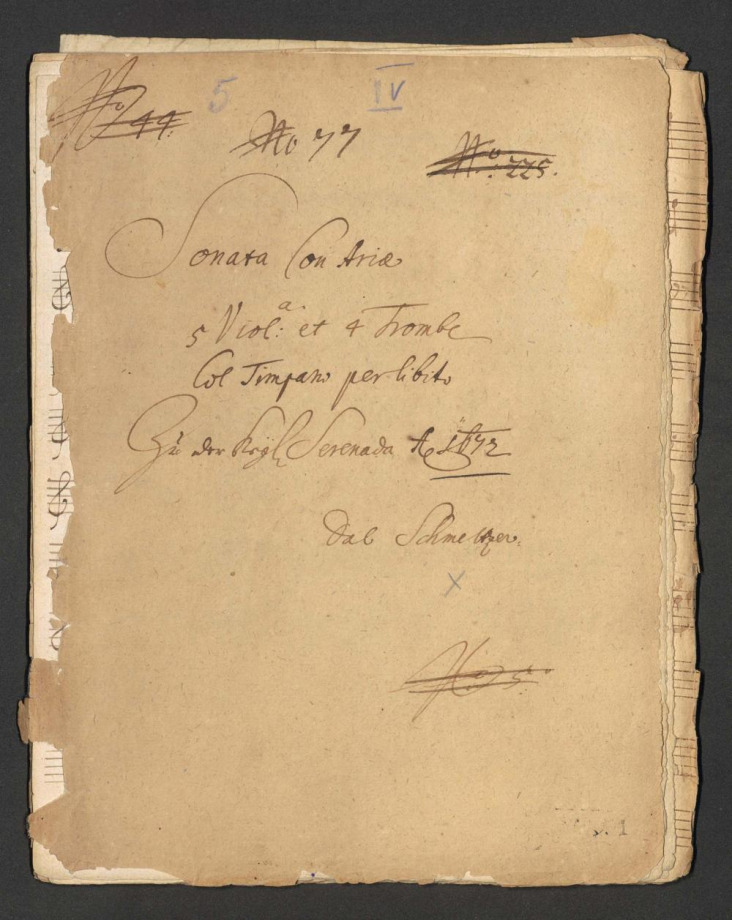 No 44.
5
IV
No 77
No: 225.
Sonata Con Ariæ
5 Viol:a et 4 Trombe
Col Timpano per libito
Zu der Kayl Serenada Ao 1672
Dal Schmeltzer.
x
No 5
1